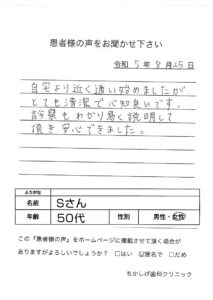 患者様の声をお聞かせ下さい
令和 5年 8月25日
自宅より近く通い始めましたが、
とても清潔で心知良いです。
診察もわかり易く説明して
頂き安心できました。
ふりがな
名前 Sさん
年齢 50代 性別 男性・女性
この『患者様の声』をホームページに掲載させて頂く場合が
ありますがよろしいでしょうか？ □はい ☑匿名で □だめ
ちかしげ歯科クリニック